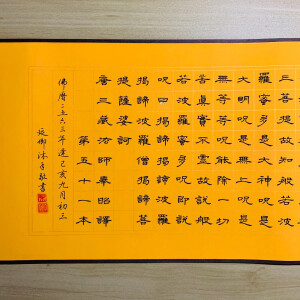 三菩提故知般若波
羅蜜多是大神呪是
大明呪是無上呪是
無等等呪能除一切
苦真實不虛故說般
若波羅蜜多呪即說
呪曰揭諦揭諦波羅
揭諦波羅僧揭諦菩
提薩婆訶
唐三藏法師奉詔譯
第五十一本
佛曆二五六三年逢己亥九月初三
沐手敬書